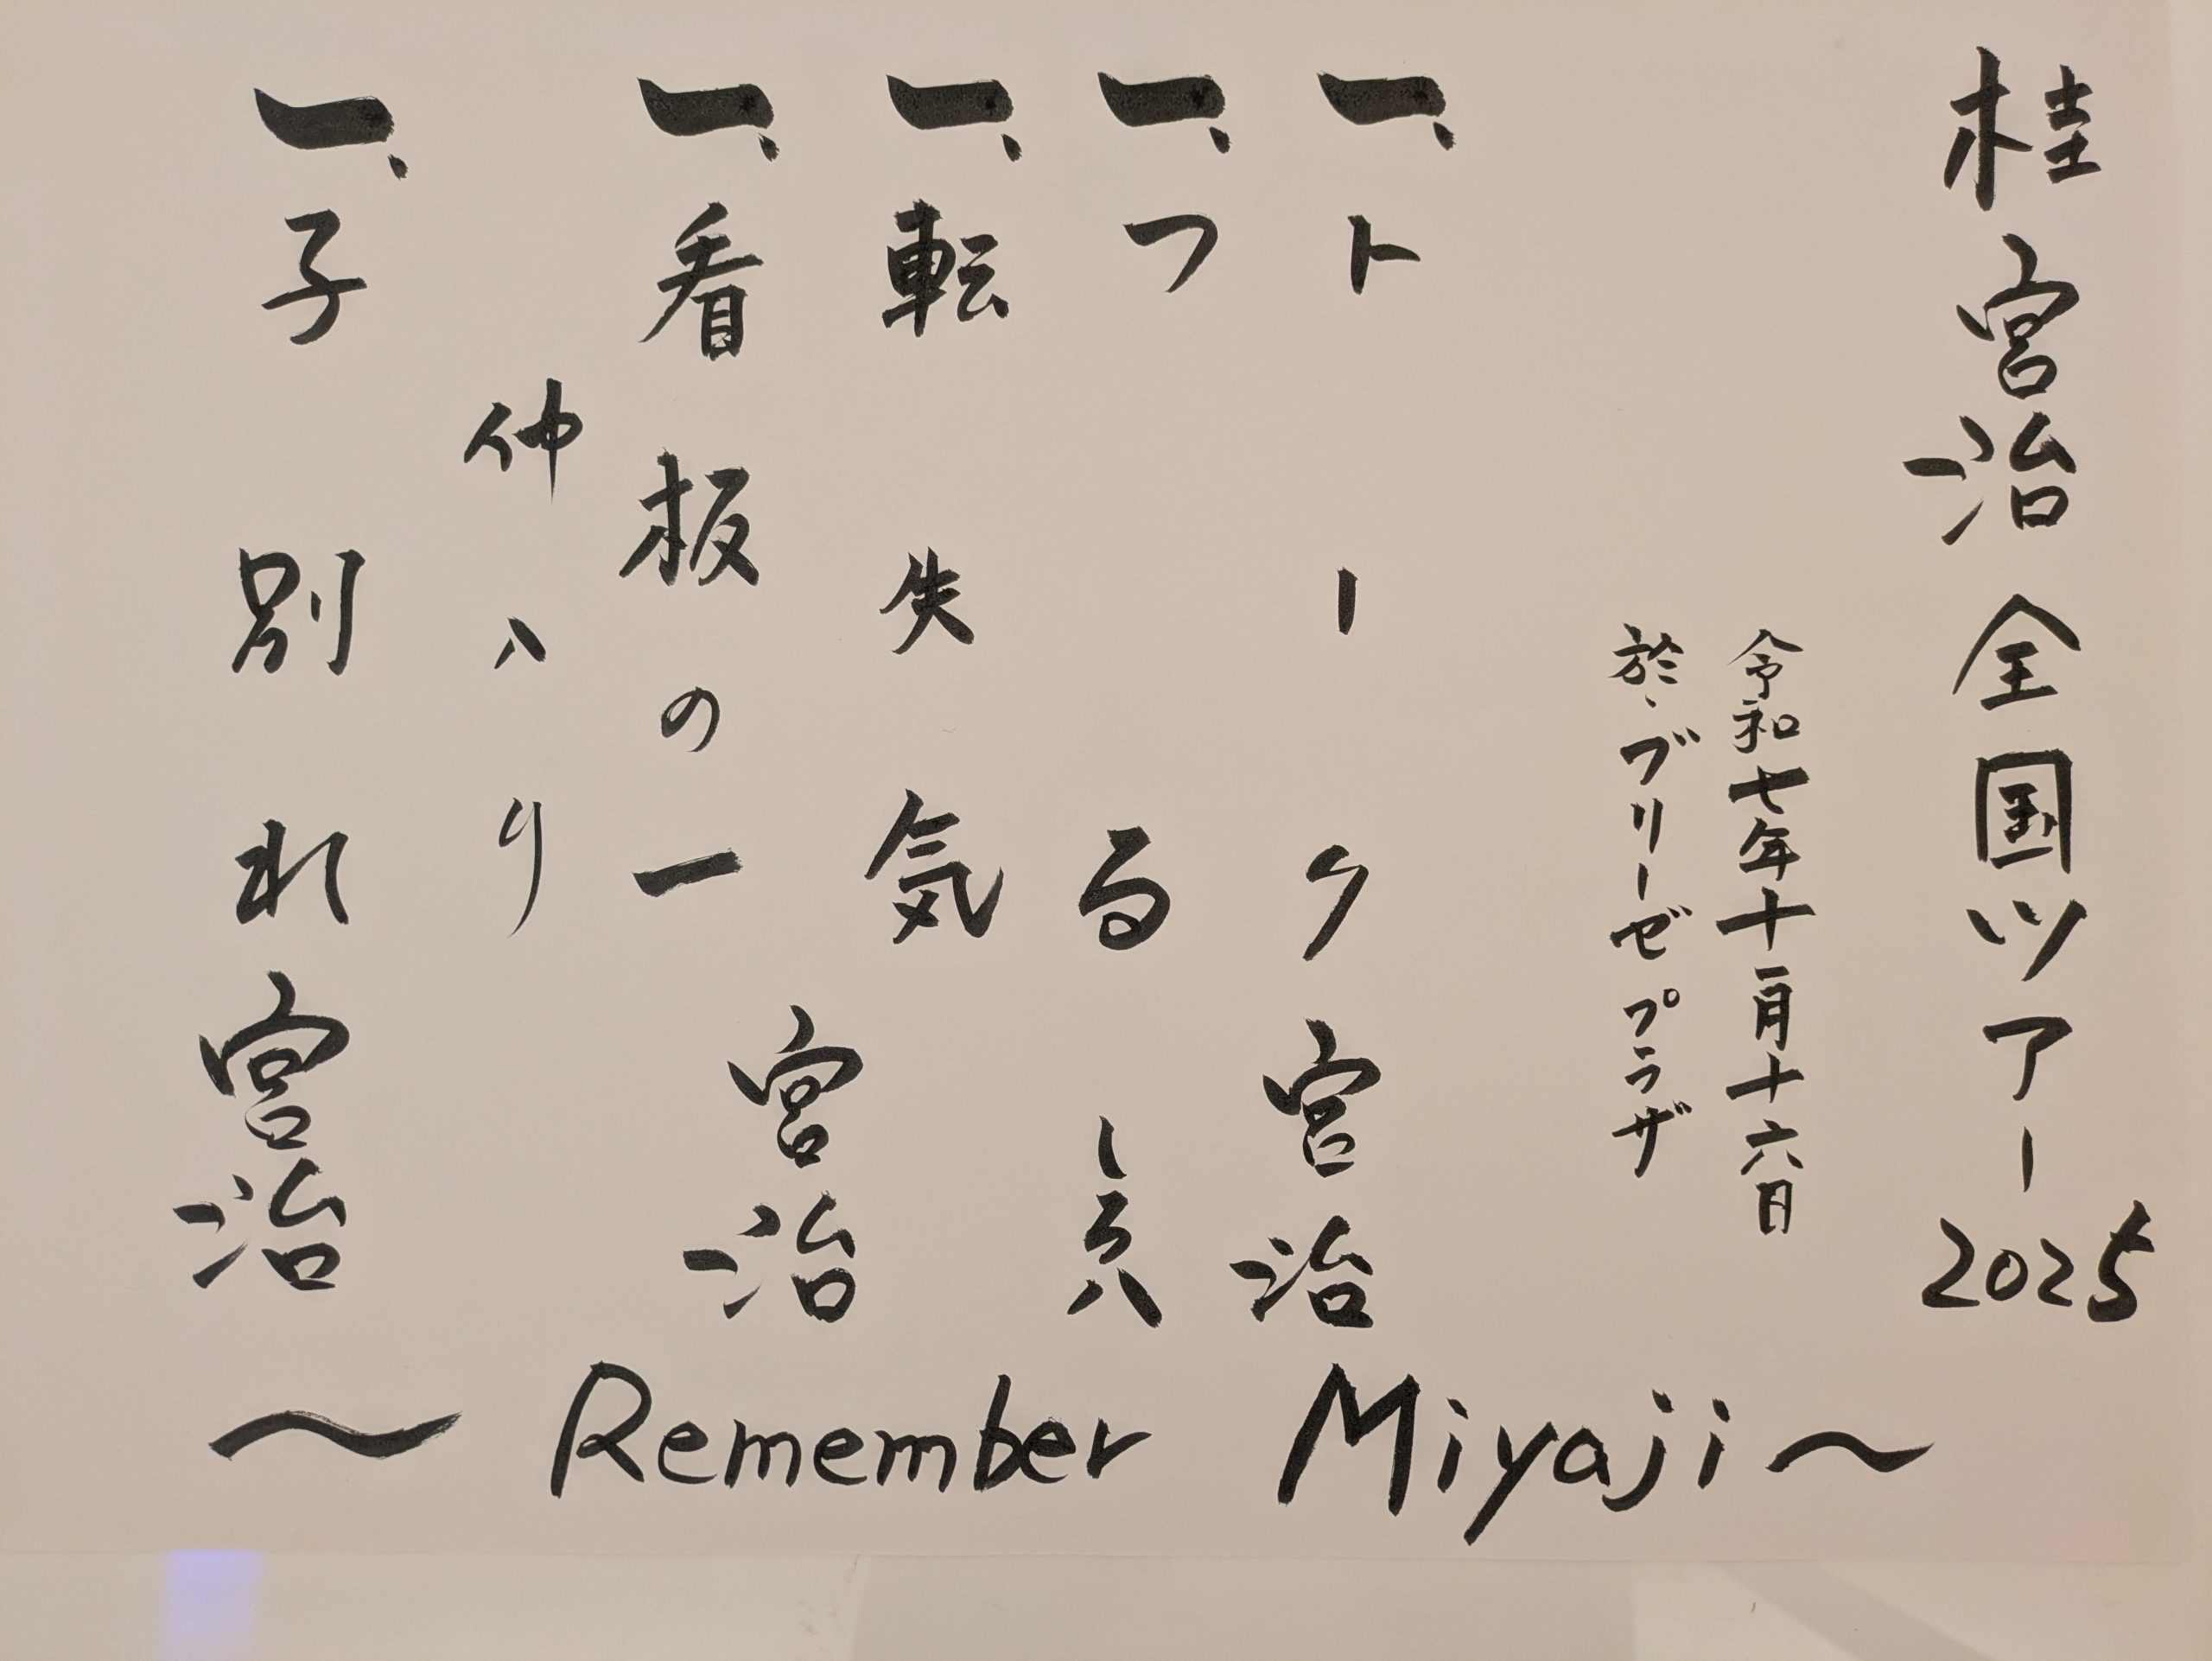 桂宮治全国ツアー2025
令和七年十一月十六日
於、ブリーゼプラザ
一、トーク 宮治
一、つる しろ八
一、転失気
一、看板の一 宮治
仲入り
一、子別れ 宮治
〜 Remember Miyaji 〜